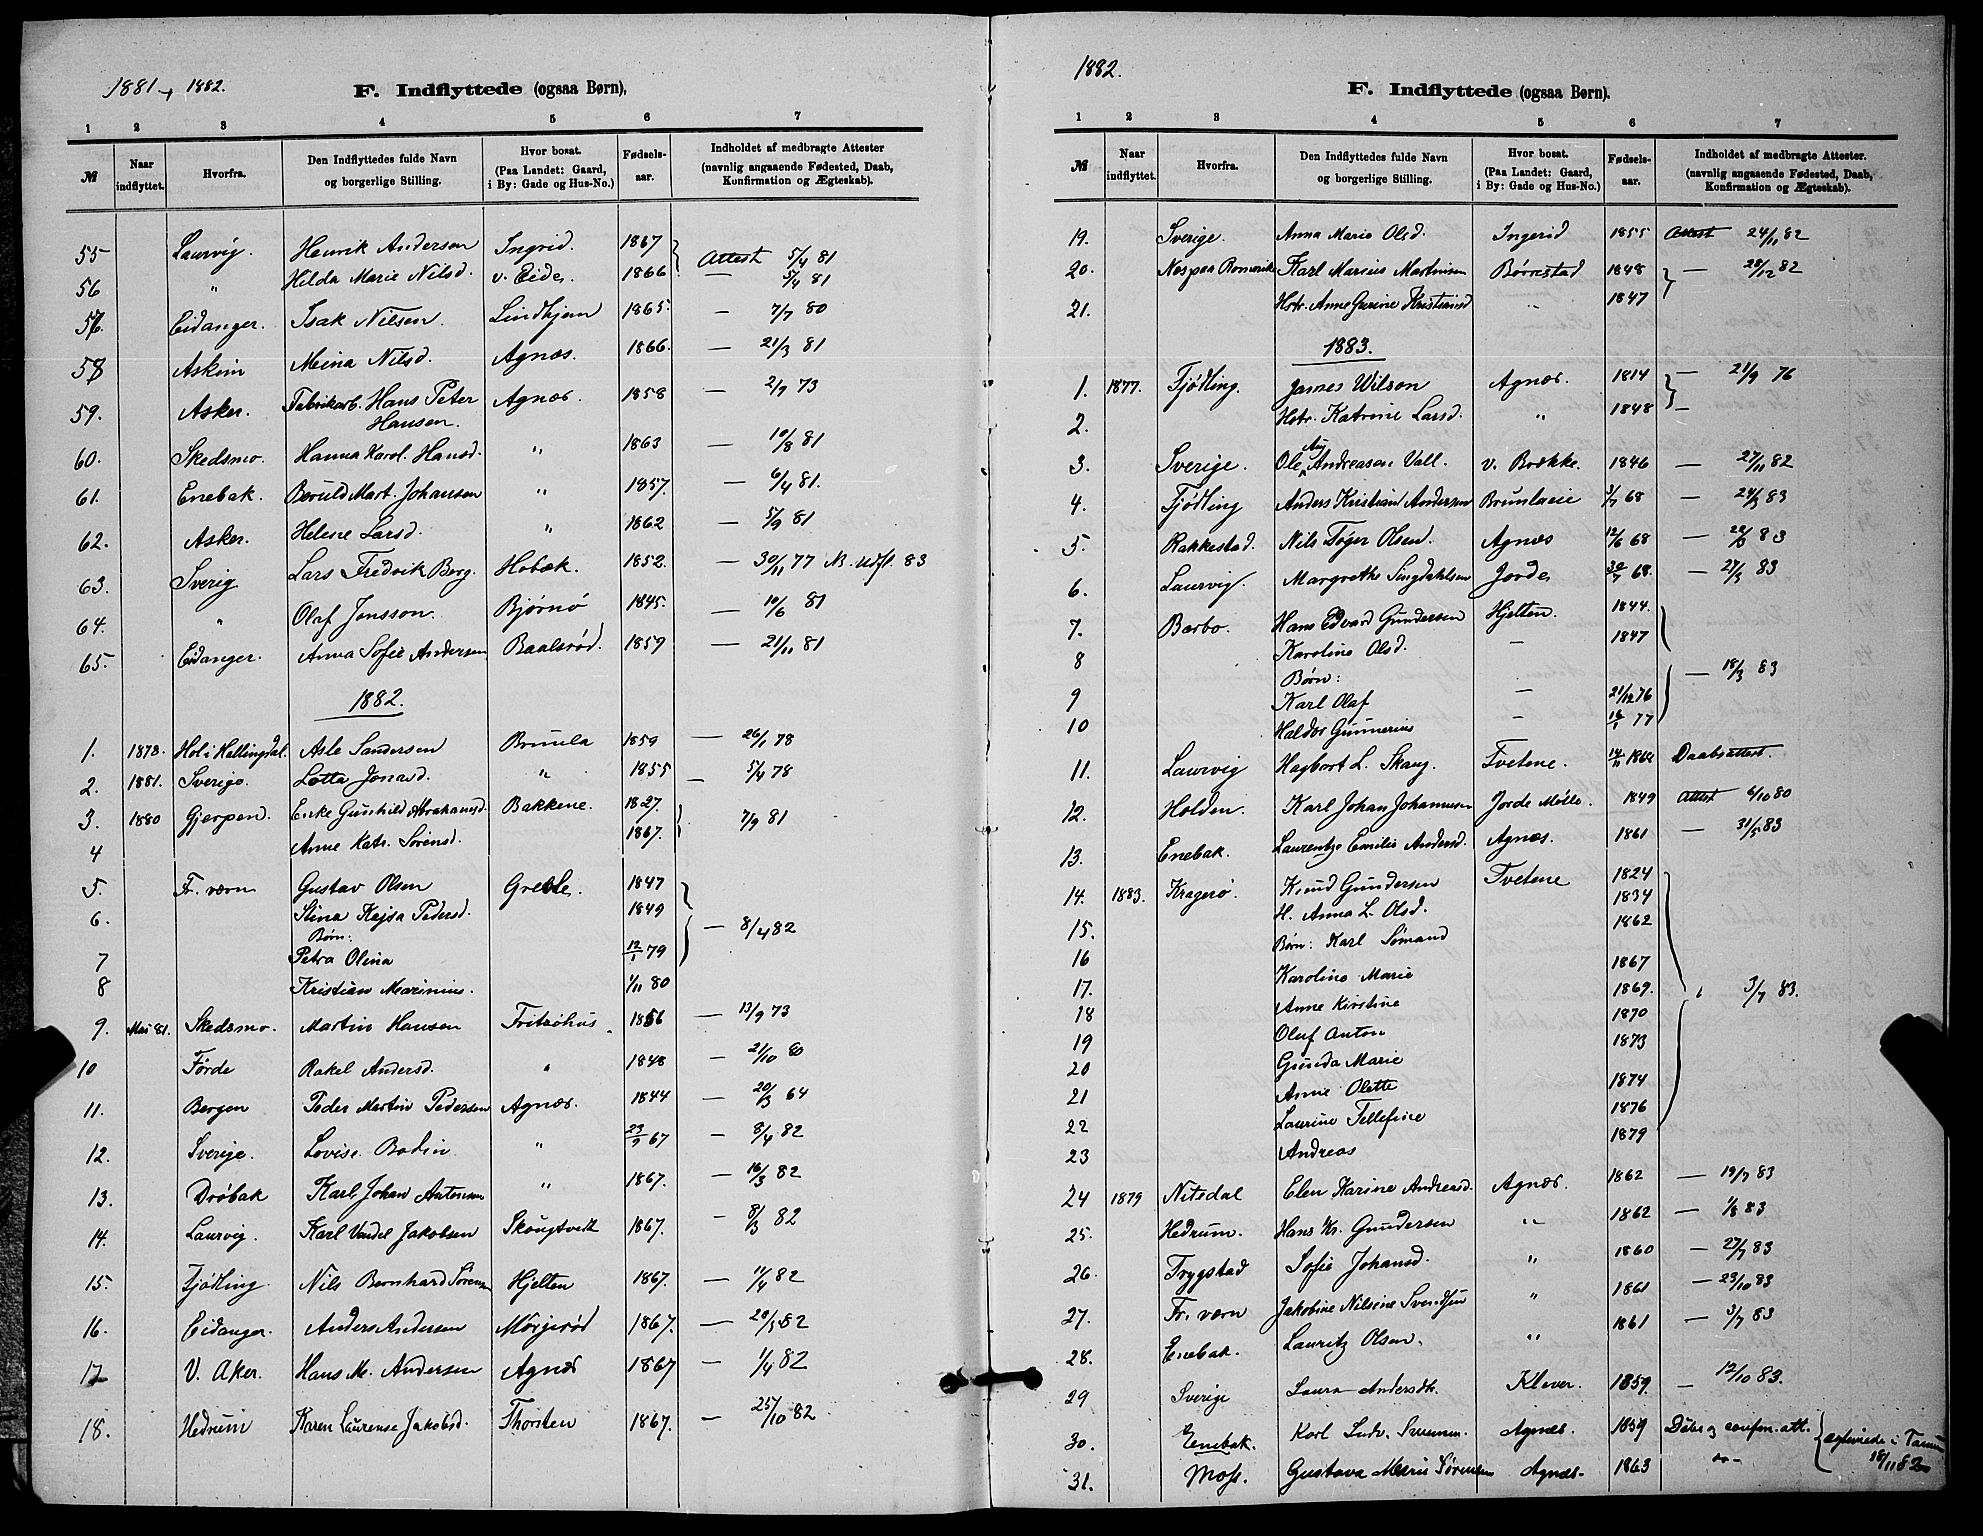 1881 + 1882.
F. Indflyttede (ogsaa Børn).
1 2 3 4 5 6 7
№ Naar indflyttet. Hvorfra. Den Indflyttedes fulde Navn og borgerlige Stilling. Hvor bosat. (Paa Landet: Gaard, i By: Gade og Hus-No.) Fødsels-aar. Indholdet af medbragte Attester (navnlig angaaende Fødested, Daab, Konfirmation og Ægteskab).
55 Laurvig Henrik Andersen Ingrid. 1867 Attest 5/4 81
56 " Hilda Marie Nilsd. v. Eide. 1866 — 5/4 81
57. Eidanger. Isak Nilsen. Lindhjem 1865. — 7/7 80
58 Askim Meina Nilsd. Agnæs. 1866. — 21/3 81
59. Asker. Fabrikarb. Hans Peter Hansen. Agnæs. 1858 — 2/7 73
60. Skedsmo. Hanna Karol. Hansd. " 1863 — 10/8 81
61. Enebak. Bernld Mart. Johansen " 1857. — 6/4 81.
62. Asker. Helene Larsd. " 1862 — 5/9 81
63. Sverig Lars Fredrik Berg. Hobæk. 1852. — 30/11 77 N. udfl. 83
64. " Olaf Jonsson. Bjørnø 1845. — 10/6 81
65. Eidanger. Anna Sofie Andersen Baalsrød. 1859 — 21/11 81
1882.
1. 1878. Hol i Hallingdal. Asle Sandersen Brunla 1859 — 26/1 78
2. 1881. Sverige. Lotta Jonasd. " 1855 — 5/4 78
3. 1880 Gjerpen. Enke Gunhild Abrahamsd. Bakkene. 1827. 7/9 81
4 Anne Katr. Sørensd. 1867.
5. Fr. værn Gustav Olsen Grette. 1847
6. Stina Kajsa Pedersd. 1849 — 8/4 82
Børn:
7 Petra Olina 12/1 79
8 Kristian Marinius. 1/11 80
9. Mai 81. Skedsmo. Martin Hansen Fritzøhus. 1856 — 13/9 73
10 Førde Rakel Andersd. " 1848 — 21/10 80
11. Bergen Peder Martin Pedersen Agnæs. 1844 — 20/3 64
12. Sverige. Lovise Bodin " 23/9 67 — 8/4 82
13. Drøbak Karl Johan Antonsen " 1867. — 16/3 82
14. Laurvig. Karl Vandel Jakobsen Skougtvedt 1867. — 8/3 82
15. Tjødling. Nils Bernhard Sørens. Hjelten 1867. — 11/4 82
16. Eidanger. Anders Andersen Mørjerød 1867. — 20/5 82
17 V. Aker. Hans M. Andersen Agnæs 1867 — 1/4 82
18. Hedrum Karen Laurense Jakobsd. Thorsten 1867. — 25/10 82
1882.
F. Indflyttede (ogsaa Børn).
1 2 3 4 5 6 7
№ Naar indflyttet. Hvorfra. Den Indflyttedes fulde Navn og borgerlige Stilling. Hvor bosat. (Paa Landet: Gaard, i By: Gade og Hus-No.) Fødsels-aar. Indholdet af medbragte Attester. (navnlig angaaende Fødested, Daab, Konfirmation og Ægteskab).
19. Sverige. Anna Maria Olsd. Ingerid 1855 Attest 24/11 82
20. Næs paa Romerike Karl Marius Martinsen Børrestad 1848 — 28/12 82
21. Hstr. Anne Gurine Kristensd " 1847
1883.
1. 1877. Tjødling. James Wilson Agnæs. 1814 — 21/9 76
2. Hstr. Katrine Larsd. " 1848 —
3. Sverige. Ole Aug. Andreasen Vall. v. Brække. 1846 — 27/11 82
4. Tjødling Anders Kristian Andersen Brunlanie 3/7 68 — 24/3 83
5. Rakkestad. Nils Töger Olsen. Agnæs 12/6 68 — 28/3 83
6. Laurvig. Margrethe Singdahlsen Jorde 30/7 68. — 27/3 83
7. Barbo. Hans Edvard Gundersen Hjelten. 1844.
8 Karoline Olsd. — 1847
Børn: — 18/3 83
9 Karl Olaf — 21/12 76
10 Haldor Gunnerius — 16/1 77
11. Laurvig Hagbart L. Skaug. Tvetene. 14/11 1864 Daabsattest.
12. Holden. Karl Johan Johannesen Jorde Mølle. 1849 Attest 6/10 80
13. Enebak. Laurentze Emilie Andersd. Agnæs. 1861 — 31/5 83
14. 1883. Kragerø. Knud Gundersen Tvetene 1824
15. H. Anna L. Olsd. 1834
16 Børn: Karl Sømand 1862
17. Karoline Marie 1867
18 Anne Kirstine 1869. " 3/7 83.
19 Oluf Anton 1870
20 Gunda Marie 1873
21 Anne Olette 1874
22 Laurine Tellefine 1876
23 Andreas 1879
24 1879 Nitsdal Elen Karine Andreasd. Agnæs. 1862 — 19/7 83
25. Hedrum. Hans Kr. Gundersen " 1862 — 1/8 83
26. Trygstad Sofie Johansd. " 1860 — 27/7 83
27. Fr. værn Jakobine Nilsine Svendsen " 1861 — 23/10 83
28. Enebak. Lauritz Olsen. " 1861 — 3/7 83
29 Sverige Laura Andersdt. Klever. 1859. — 12/10 83.
30. Enebak. Karl Ludv. Agnæs. 1859 Døbe og confirm. att.
31. Moss. Gustava Marie Sørensen Agnæs. 1863 do — ægteviede i Tanum 18/11 82